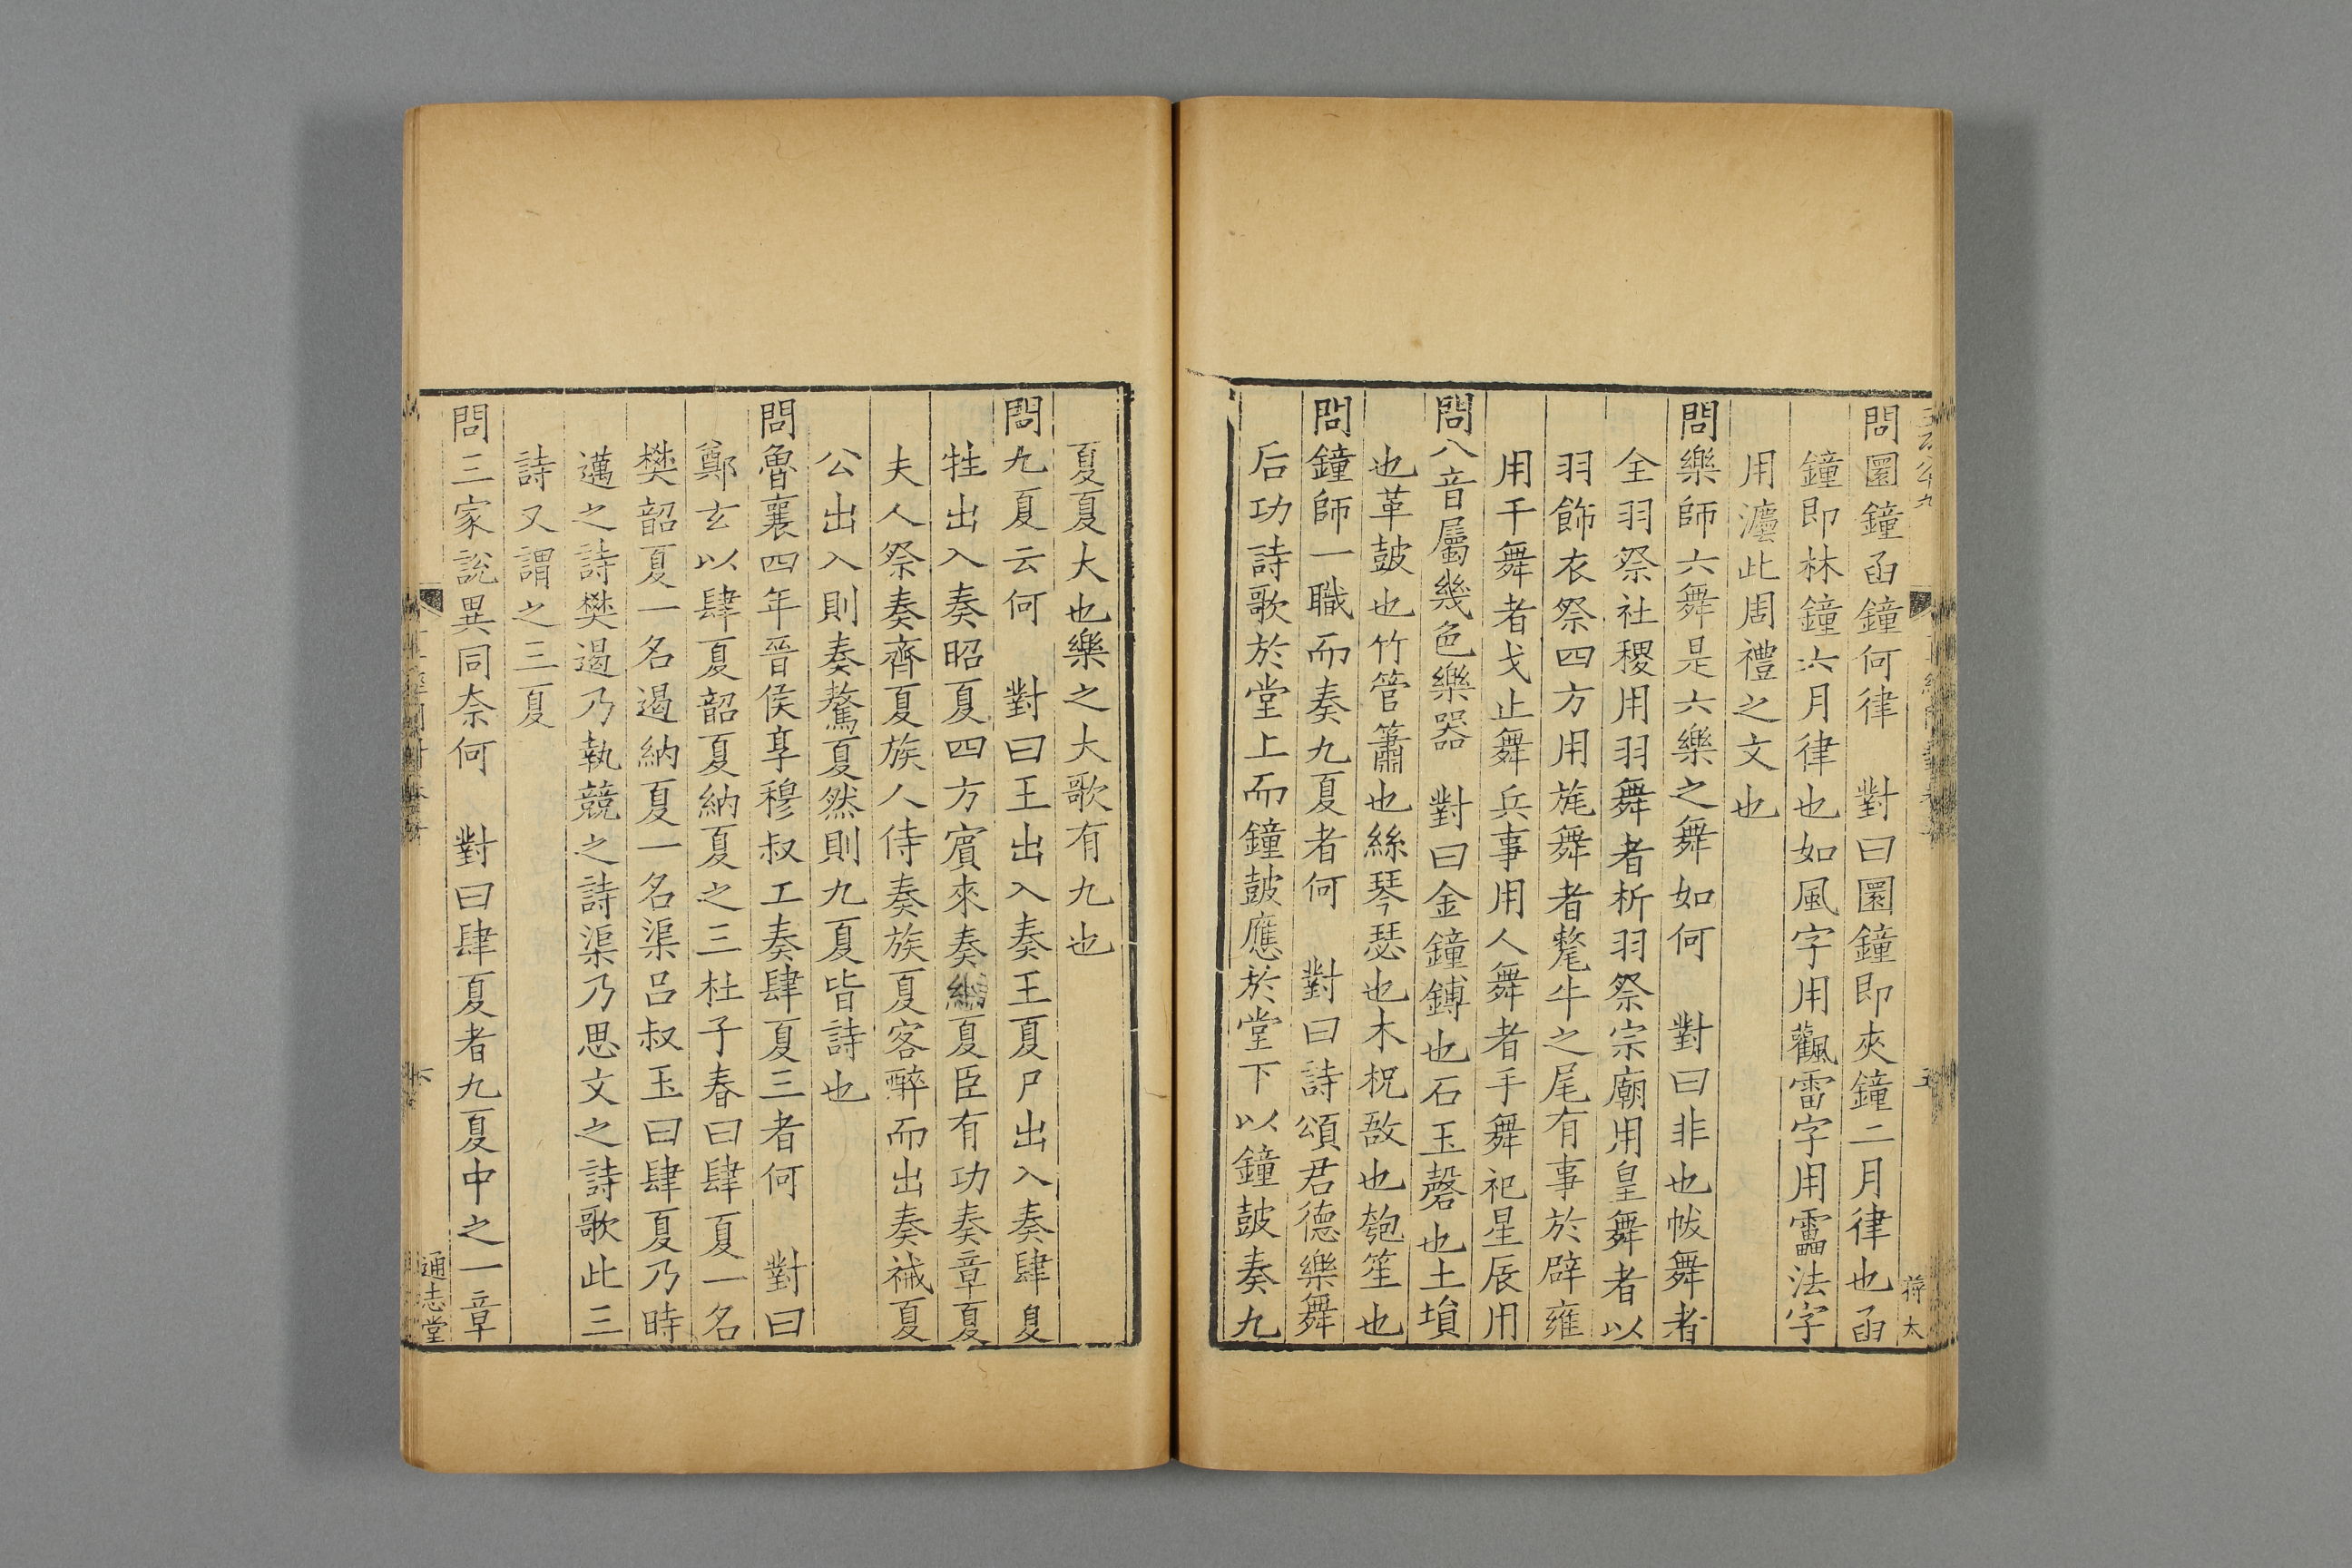 問圜鐘函鐘何律　對曰圜鐘即夾鐘二月律也函
鐘即林鐘六月律也如風字用飌雷字用靁法字
用灋此周禮之文也
問樂師六舞是六樂之舞如何　對曰非也帗舞者
全羽祭社稷用羽舞者析羽祭宗廟用皇舞者以
羽飾衣祭四方用旄舞者氂牛之尾有事於辟雍
用干舞者戈止舞兵事用人舞者手舞祀星辰用
問八音屬幾色樂器　對曰金鐘鎛也石玉磬也土塤
也革鼓也竹管簫也絲琴瑟也木柷敔也匏笙也
問鐘師一職而奏九夏者何　對曰詩頌君德樂舞
后功詩歌於堂上而鐘鼓應於堂下以鐘鼓奏九
夏夏大也樂之大歌有九也
問九夏云何　對曰王出入奏王夏尸出入奏肆夏
牲出入奏昭夏四方賓來奏納夏臣有功奏章夏
夫人祭奏齊夏族人侍奏族夏客醉而出奏祴夏
公出入則奏驁夏然則九夏皆詩也
問魯襄四年晉侯享穆叔工奏肆夏三者何　對曰
鄭玄以肆夏韶夏納夏之三杜子春曰肆夏一名
樊韶夏一名遏納夏一名渠呂叔玉曰肆夏乃時
邁之詩樊遏乃執競之詩渠乃思文之詩歌此三
詩又謂之三夏
問三家說異同奈何　對曰肆夏者九夏中之一章
六
通志堂